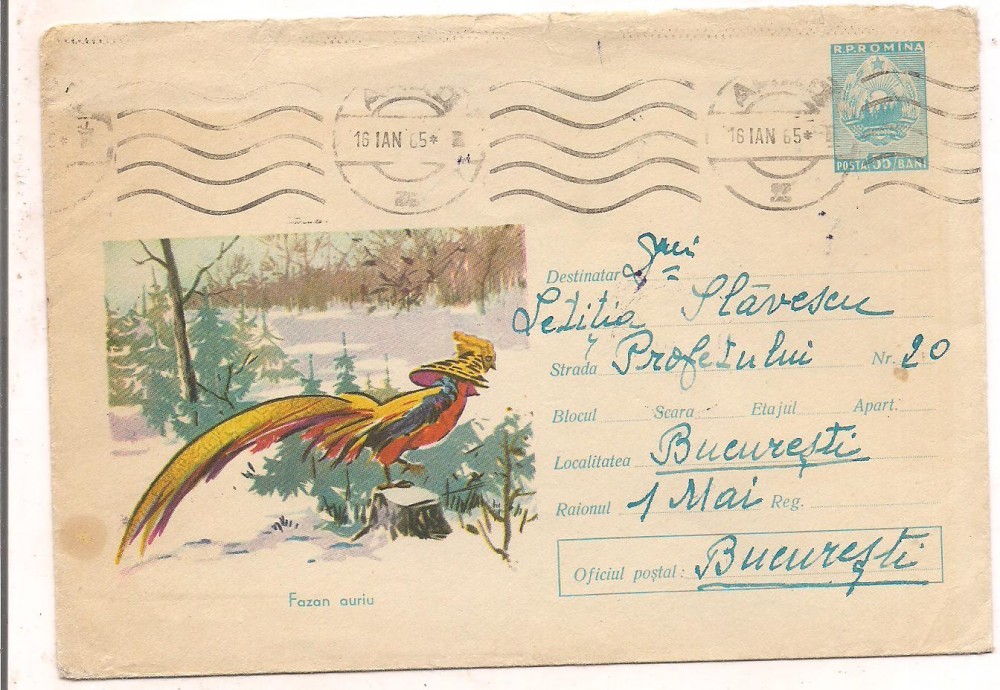 R.P.ROMINA
16 IAN 65*
16 IAN 65*
POSTA 55 BANI
Destinatar
Letiția Slăvescu
Strada Profetului Nr. 20
Blocul Scara Etajul Apart.
Localitatea București
Raionul 1 Mai Reg.
Oficiul poștal: București
Fazan auriu